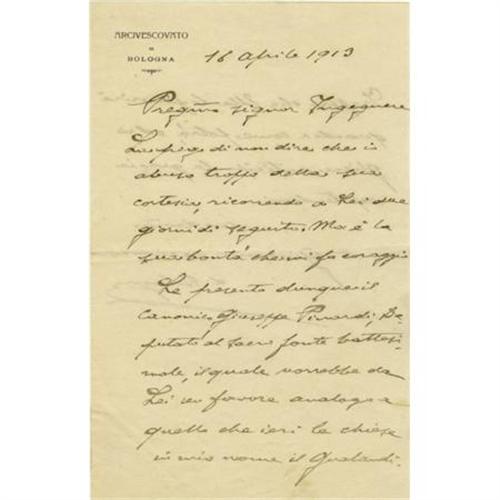 ARCIVESCOVATO
DI
BOLOGNA
16 Aprile 1913
Pregmo signor Ingegnere
La prego di non dire che io
abuso troppo della sua
cortesia, ricorrendo a Lei due
giorni di seguito. Ma è la
sua bontà che mi fa coraggio
Le presento dunque il
canonico Giuseppe Pinardi, De-
putato al sacro fonte battesi-
male, il quale vorrebbe da
Lei un favore analogo a
quello che ieri le chiese
in mio nome il Gualandi.